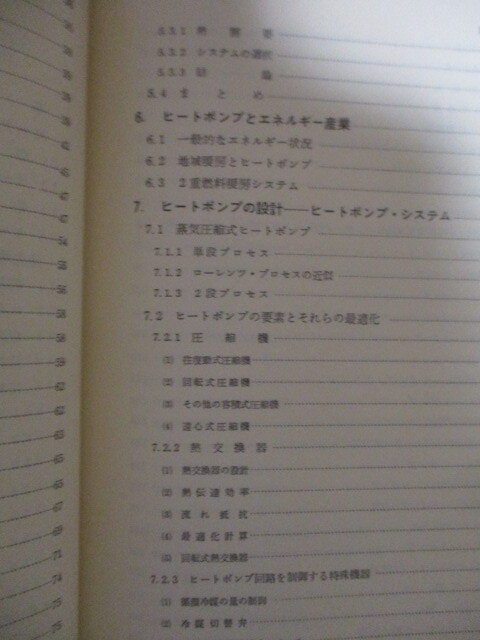 5.3.1 熱需要
5.3.2 システムの選択
5.3.3 結論
5.4 まとめ
6. ヒートポンプとエネルギー産業
6.1 一般的なエネルギー状況
6.2 地域暖房とヒートポンプ
6.3 2重燃料暖房システム
7. ヒートポンプの設計——ヒートポンプ・システム
7.1 蒸気圧縮式ヒートポンプ
7.1.1 単段プロセス
7.1.2 ローレンツ・プロセスの近似
7.1.3 2段プロセス
7.2 ヒートポンプの要素とそれらの最適化
7.2.1 圧縮機
(1) 往復動式圧縮機
(2) 回転式圧縮機
(3) その他の容積式圧縮機
(4) 遠心式圧縮機
7.2.2 熱交換器
(1) 熱交換器の設計
(2) 熱伝達効率
(3) 流れ抵抗
(4) 最適化計算
(5) 回転式熱交換器
7.2.3 ヒートポンプ回路を制御する特殊機器
(1) 循環冷媒の量の制御
(2) 冷媒切替弁